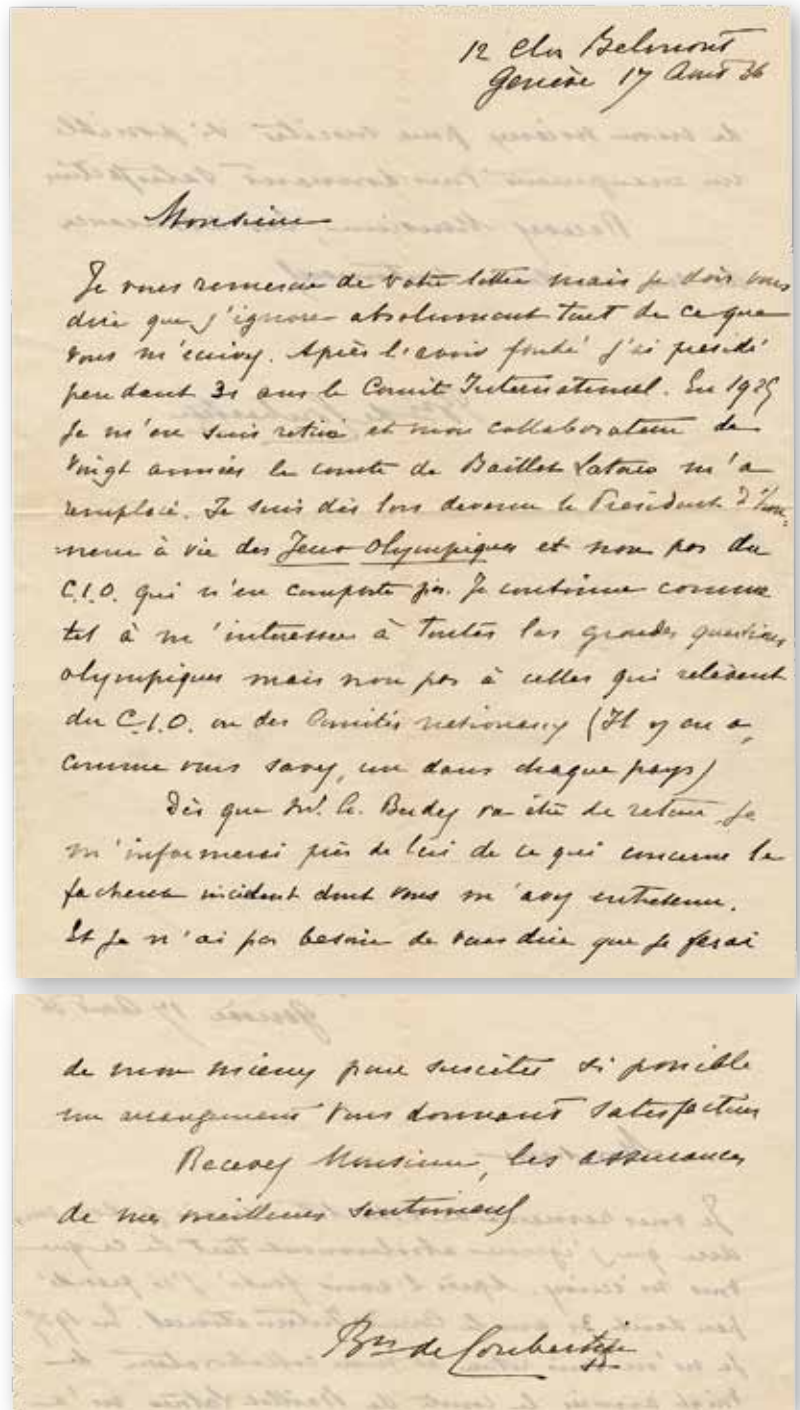 12 Clos Belmont
Genève 17 Août 36
Monsieur
Je vous remercie de votre lettre mais je dois vous
dire que j'ignore absolument tout de ce que
vous m'écrivez. Après l'avoir fondé j'ai présidé
pendant 31 ans le Comité International. En 1925
Je m'en suis retiré et mon collaborateur de
vingt années le comte de Baillet Latour m'a
remplacé. Je suis dès lors devenu le Président d'hon-
neur à vie des Jeux Olympiques et non pas du
C.I.O. qui n'en comporte pas. Je continue comme
tel à m'intéresser à toutes les grandes questions
olympiques mais non pas à celles qui relèvent
du C.I.O. ou des Comités nationaux (Il y en a,
comme vous savez, un dans chaque pays)
Dès que M. A. Berdez va être de retour je
m'informerai près de lui de ce qui concerne le
facheux incident dont vous m'avez entretenu.
Et Je n'ai pas besoin de vous dire que je ferai
de mon mieux pour susciter si possible
un arrangement vous donnant satisfaction
Recevez Monsieur, les assurances
de mes meilleurs sentiments
Bon de Coubertin